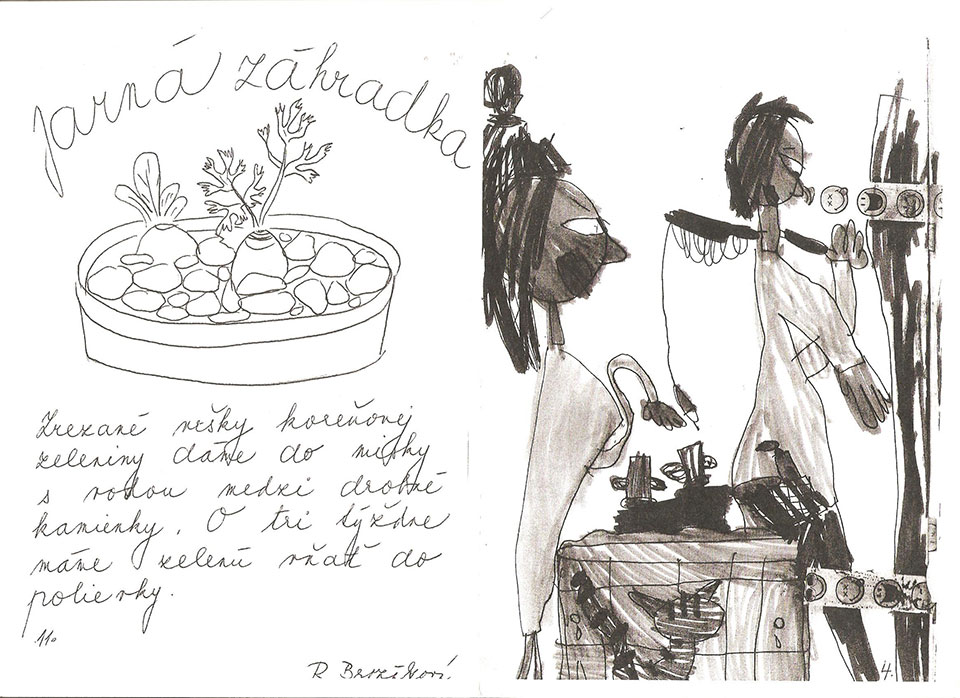 Jarná záhradka
Zrezané vršky koreňovej
zeleniny dáme do misky
s vodou medzi drobné
kamienky. O tri týždne
máme zelenú vňať do
polievky.
11.
R
4.